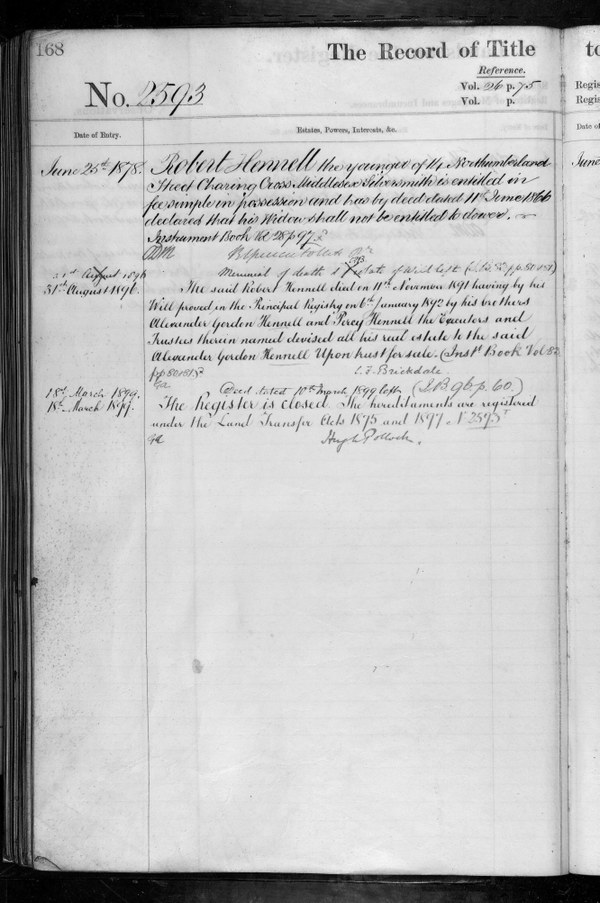 168
The Record of Title
Reference.
No. 2593
Vol. 26 p. 75
Vol. p.
Date of Entry.
Estates, Powers, Interests, &c.
June 25th 1878.
Robert Hennell the younger of 14 Northumberland
Street Charing Cross Middlesex Silversmith is entitled in
fee simple in possession and has by deed dated 11th June 1866
declared that his Widow shall not be entitled to dower.
Instrument Book Vol 28 p 97
Memorial of death & Probate of Will left
31st August 1896.
31st August 1896.
The said Robert Hennell died on 11th November 1891 having by his
Will proved in the Principal Registry on 6th January 1892 by his brothers
Alexander Gordon Hennell and Percy Hennell the Executors and
Trustees therein named devised all his real estate to the said
Alexander Gordon Hennell Upon trust for sale. (Inst Book Vol 82
pp 80 & 81)
C. F. Brickdale.
18th March 1899.
Deed dated 10th March 1899 left (I.B. 96 p. 60.)
18th March 1899.
The Register is closed. The hereditaments are registered
under the Land Transfer Acts 1875 and 1897 No 2595
Hugh Pollock.
to
Regis
Regis
Date of
June